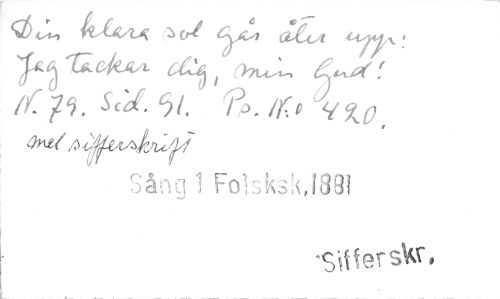 Din klara sol går åter upp:
Jag tackar dig, min Gud!
N. 79. Sid. 91. Ps. N:o 420.
mel sifferskrift
Sång 1 Folsksk.1881
Sifferskr.